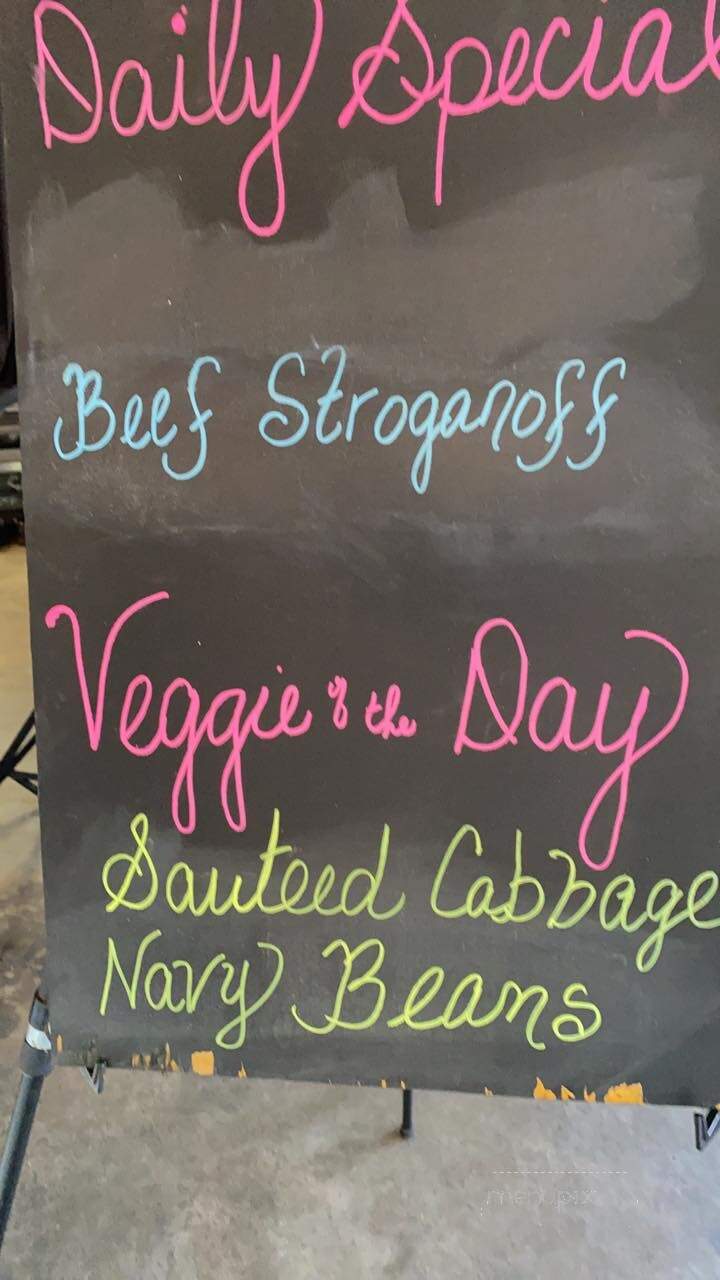 Daily Special
Beef Stroganoff
Veggie of the Day
Sauteed Cabbage
Navy Beans
menupix